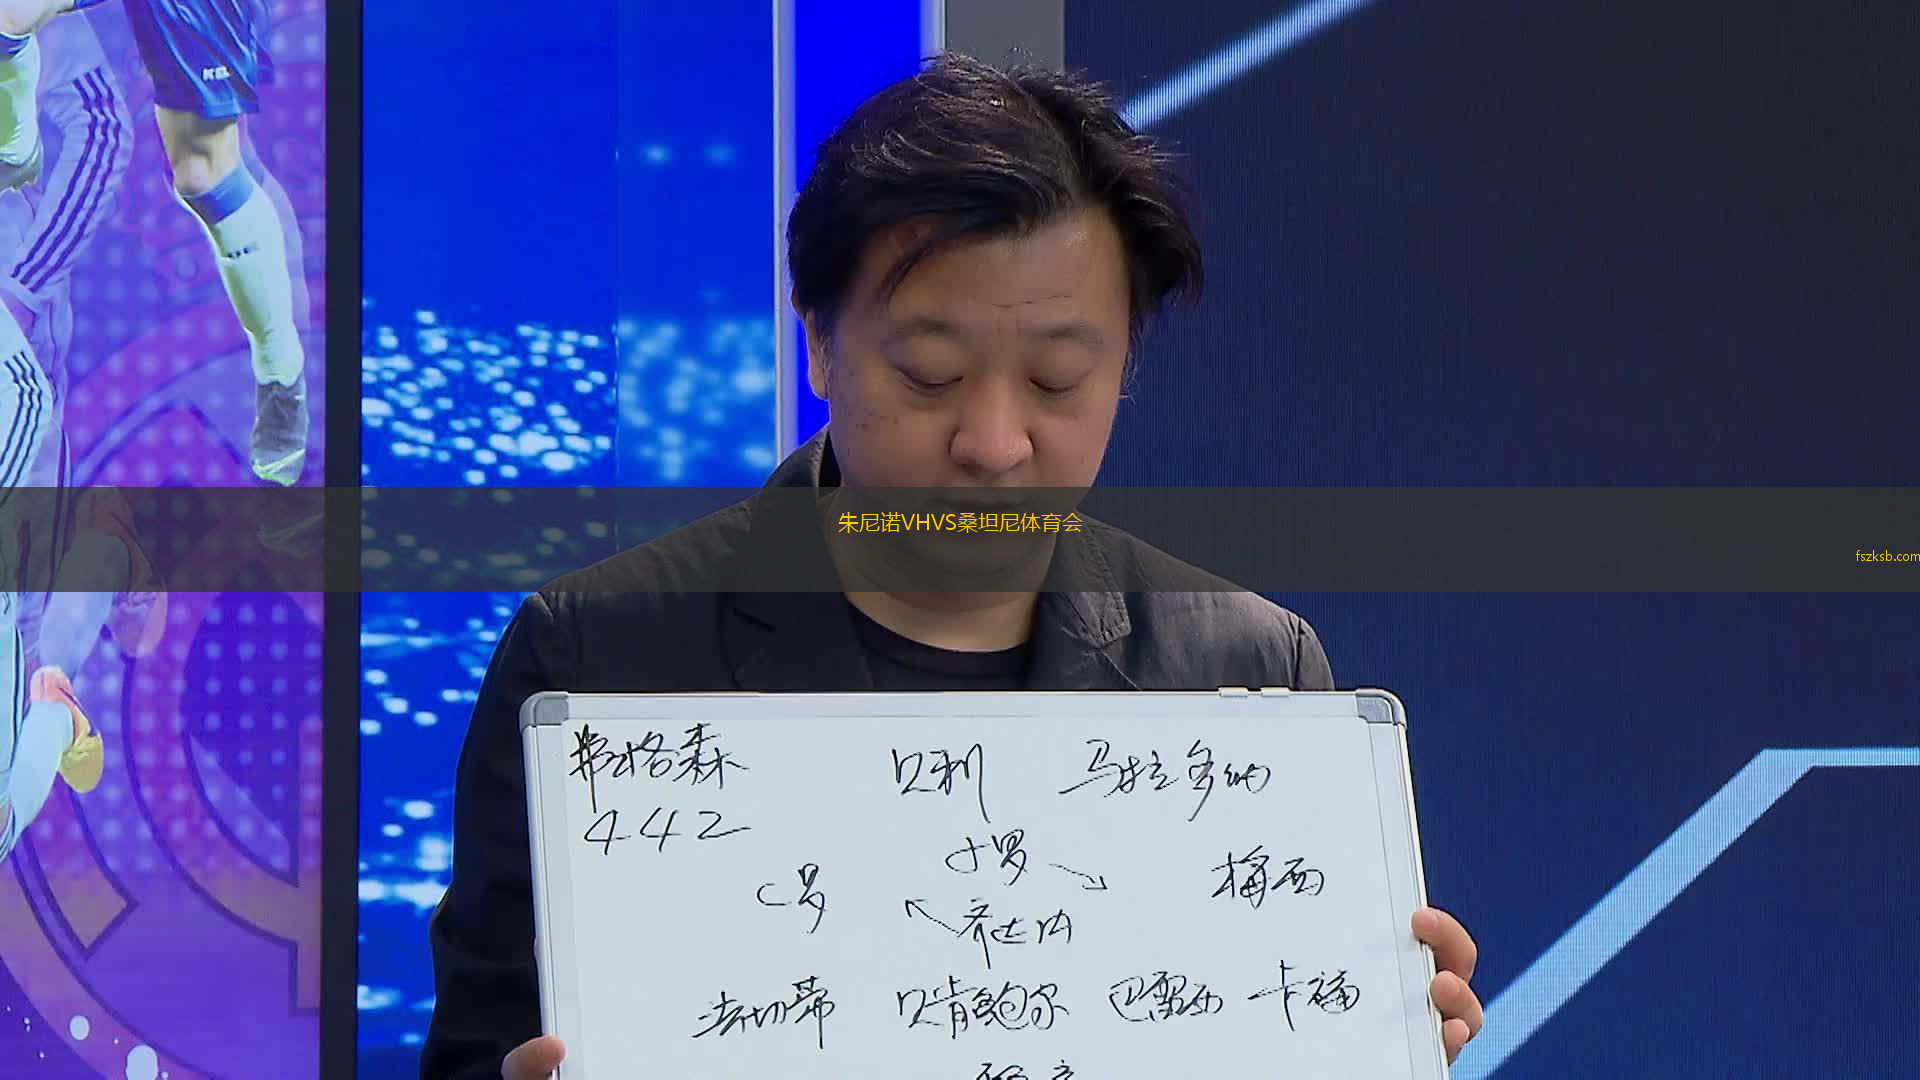 朱尼诺VHVS桑坦尼体育会
fszksb.com
弗格森 贝利 马拉多纳
442
小罗
C罗 梅西
齐达内
法切蒂 贝肯鲍尔 巴雷西 卡福